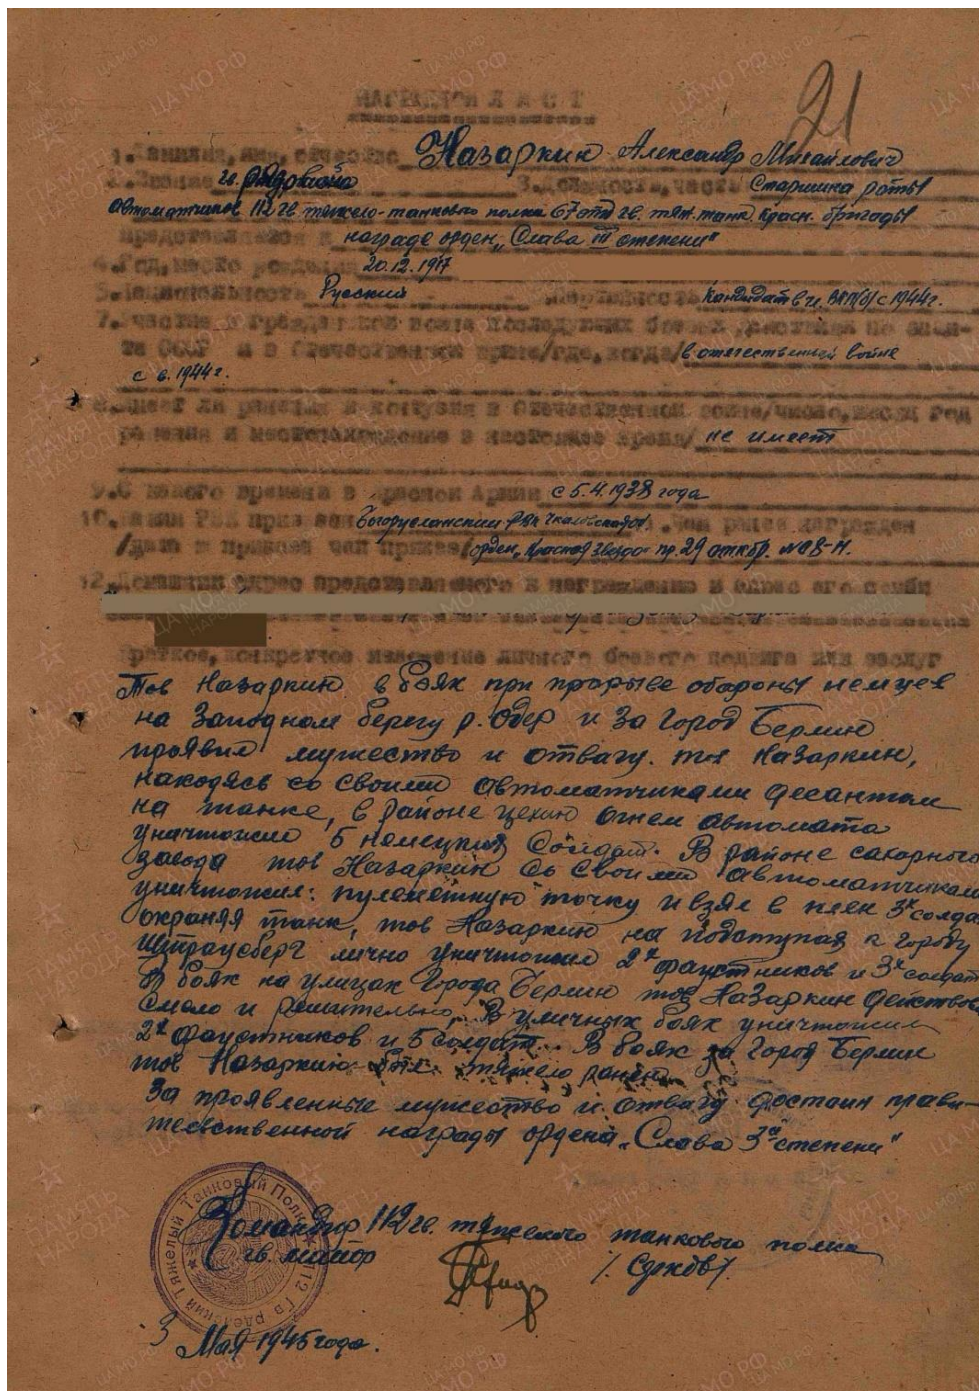 21
НАГРАДНОЙ ЛИСТ
1. Фамилия, имя, отчество Назаркин Александр Михайлович
2. Звание гв. рядовой 3. Должность, часть Старшина роты
автоматчиков 112 гв. тяжело-танкового полка 67 отд гв. тяж. танк. красн. бригады
Представляется к награде орден „Слава III степени"
4. Год, место рождения 20.12.1917
5. Национальность Русский Партийность кандидат в чл. ВКП(б) с 1944г.
7. Участие в гражданской войне последующих боевых действиях по защи-
те СССР и в Отечественной войне/где, когда/ в отечественной войне
с в. 1944г.
8. Имеет ли ранения и контузия в Отечественной войне/число, месяц год
ранения и местонахождение в настоящее время/ не имеет
9. С какого времени в Красной Армии с 5.4.1938 года
10. Каким РВК призван Бугурусланским РВК Чкаловской обл. Чем ранее награжден
/дата и приказ чей приказ/ орден „Красная Звезда" пр. 29 октбр. № 08-н.
12. Домашний адрес представляемого к награждению и адрес его семьи
Краткое, конкретное изложение личного боевого подвига или заслуг
Тов Назаркин в боях при прорыве обороны немцев
на Западном берегу р. Одер и за Город Берлин
проявил мужество и отвагу. тов Назаркин,
находясь со своими автоматчиками десантом
на танке, в районе огнем автомата
уничтожил 5 немецких Солдат. В районе сахарного
завода тов Назаркин со своими автоматчикам
уничтожил: пулеметную точку и взял в плен 3х солда
охраняя танк, тов Назаркин на подступах к городу
Штраусберг лично уничтожил 2х фаустников и 3х солдат
В боях на улицах Города Берлин тов Назаркин действов
смело и решительно. В уличных боях уничтожил
2х фаустников и 5 солдат. В боях за Город Берлин
тов Назаркин был тяжело ранен.
За проявленные мужество и отвагу достоин прави-
тельственной награды ордена „Слава 3й степени"
Командир 112 гв. тяжелого танкового полка
гв. майор
3 Мая 1945 года.
Тяжелый Танковый Полк 112 Гвардейский
ЦА МО РФ
ПАМЯТЬ НАРОДА